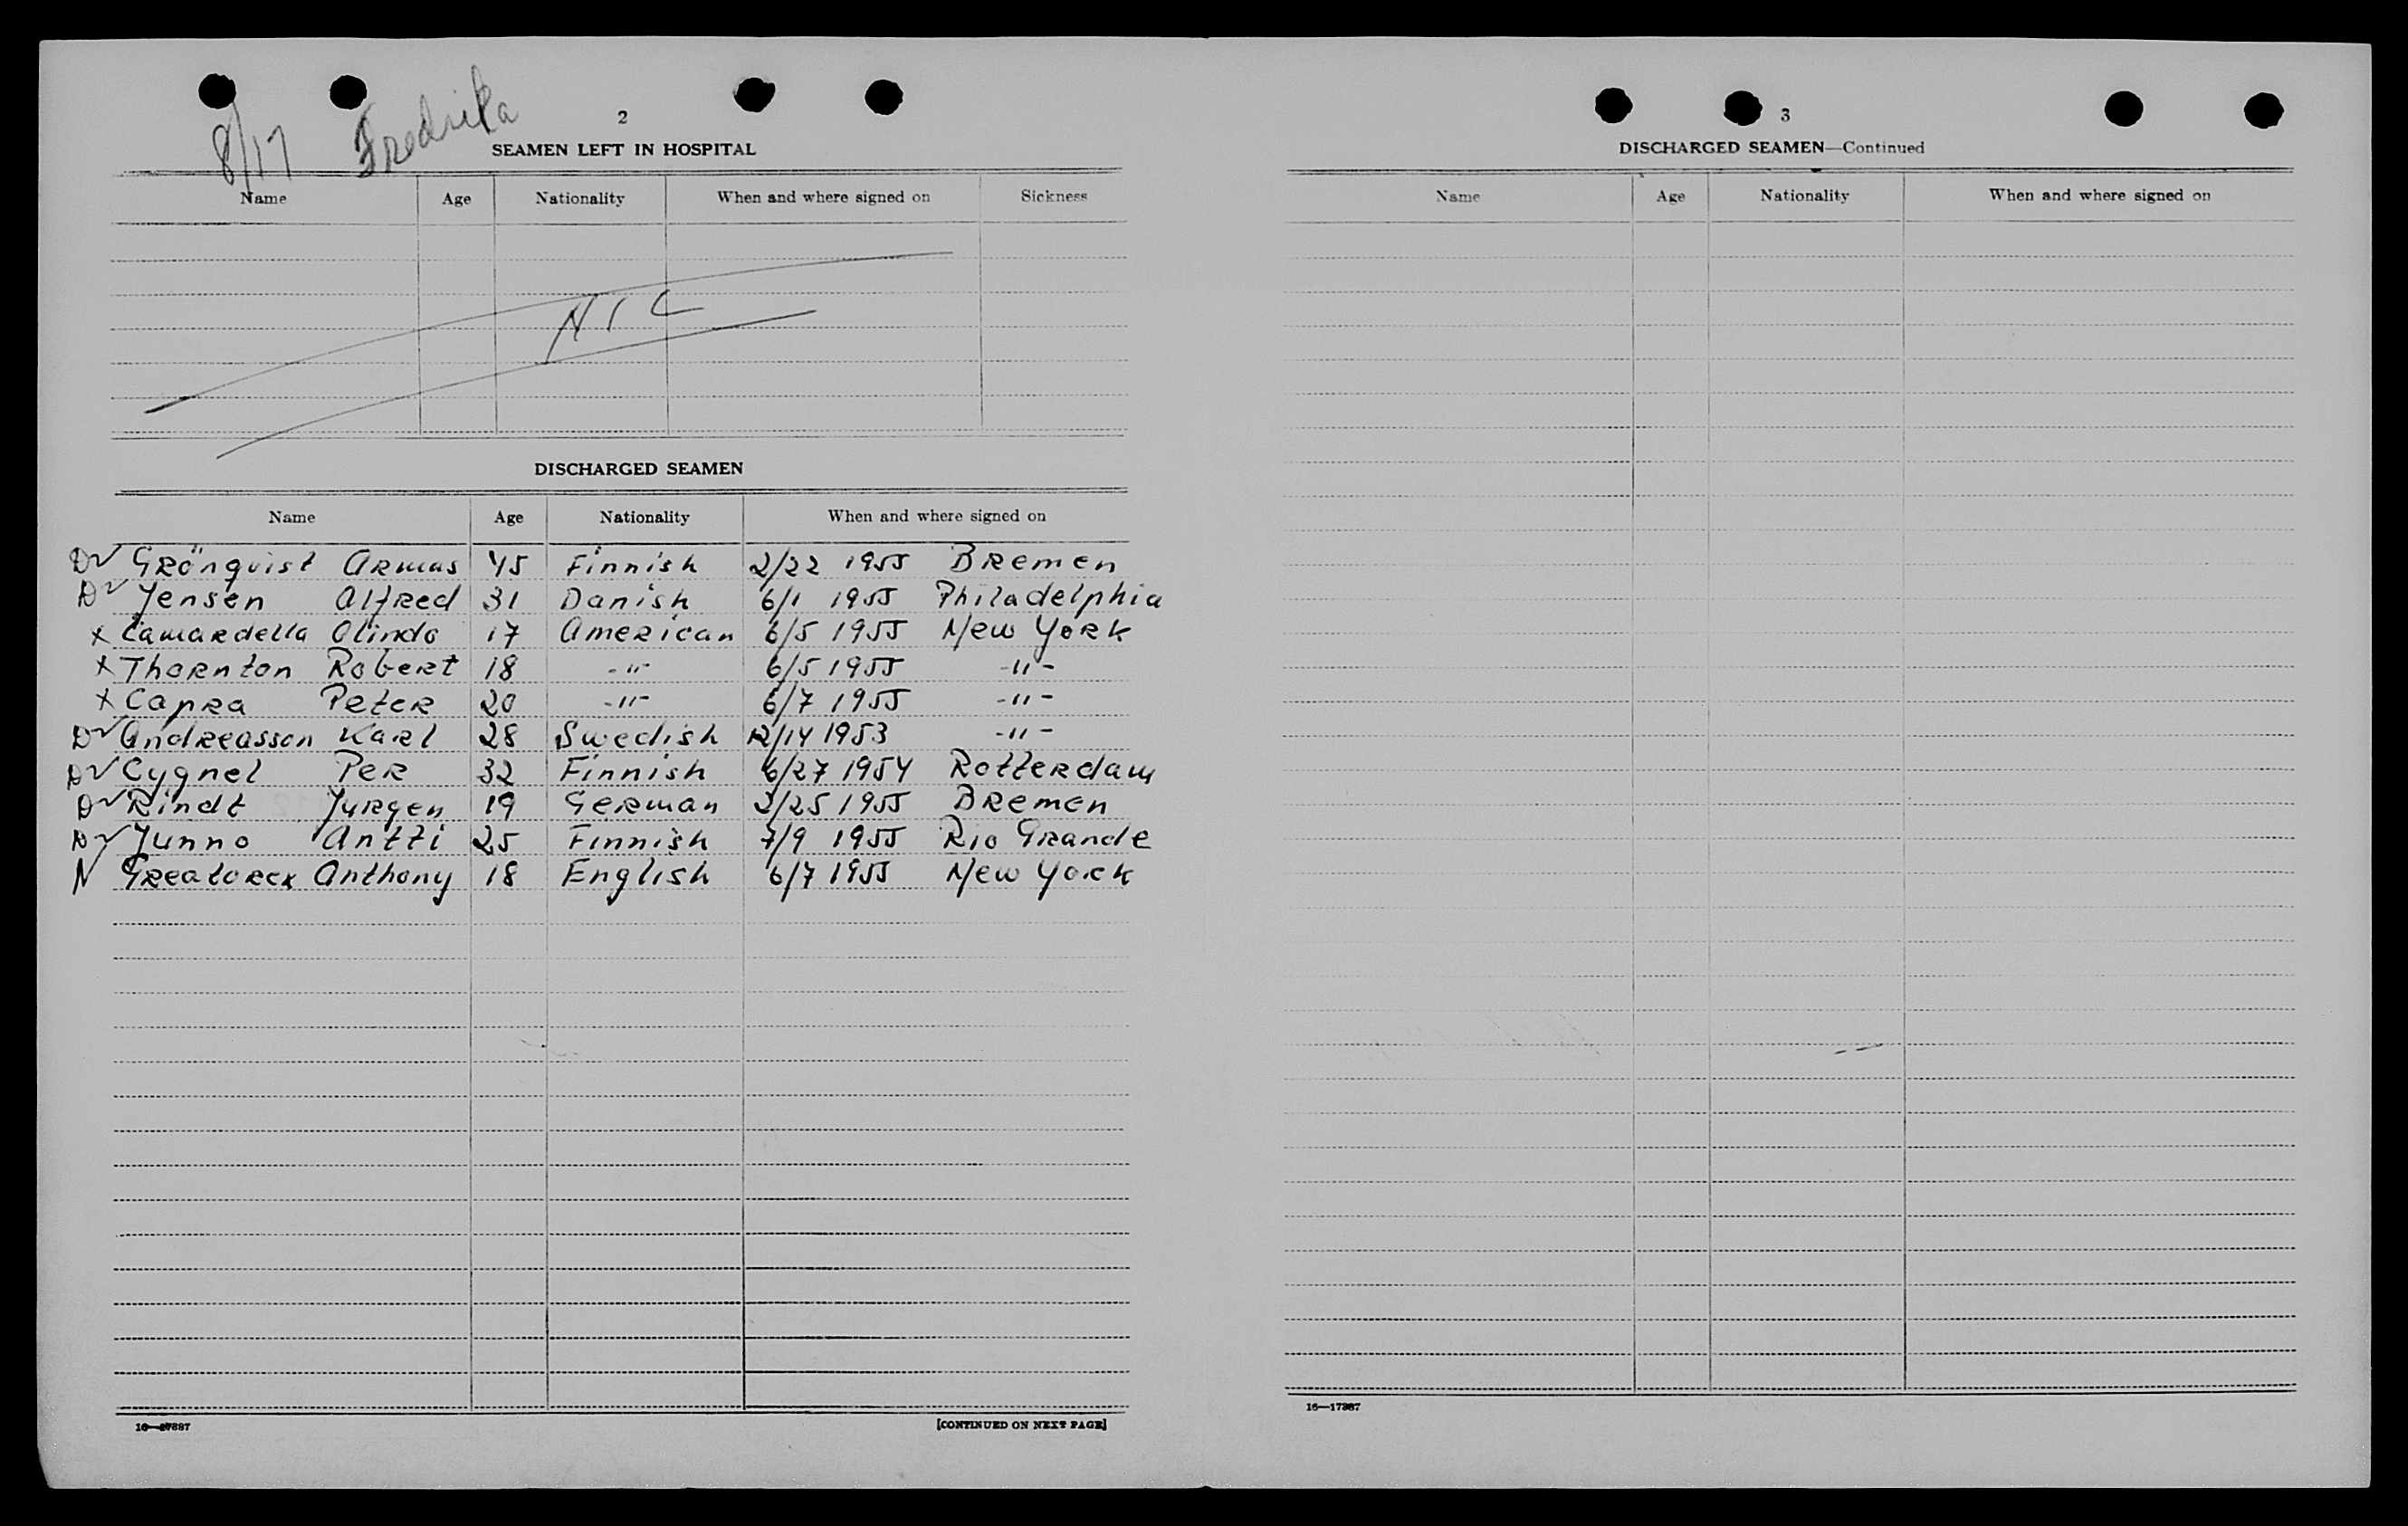 8/17 Fredrika
2
SEAMEN LEFT IN HOSPITAL
Name Age Nationality When and where signed on Sickness
NIL
DISCHARGED SEAMEN
Name Age Nationality When and where signed on
D✓ Grönqvist Armas 45 Finnish 2/22 1955 Bremen
D✓ Jensen Alfred 31 Danish 6/1 1955 Philadelphia
x Camardella Olindo 17 American 6/5 1955 New York
x Thornton Robert 18 -"- 6/5 1955 -"-
x Capra Peter 20 -"- 6/7 1955 -"-
D✓ Andreasson Karl 28 Swedish 12/14 1953 -"-
D✓ Cygnel Per 32 Finnish 6/27 1954 Rotterdam
D✓ Rindt Jurgen 19 German 2/25 1955 Bremen
D✓ Junno Antti 25 Finnish 7/9 1955 Rio Grande
N Greatorex Anthony 18 English 6/7 1955 New York
[CONTINUED ON NEXT PAGE]
3
DISCHARGED SEAMEN—Continued
Name Age Nationality When and where signed on
16—17387